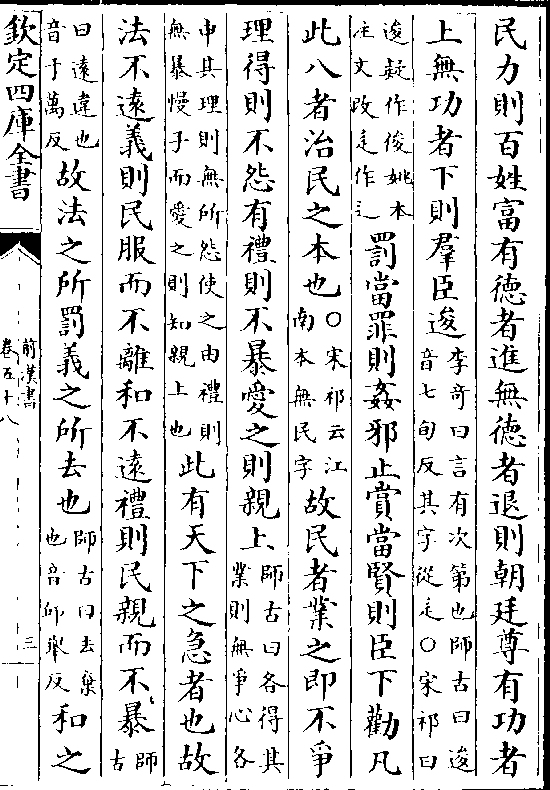 民力則百姓富有德者進無德者退則朝廷尊有功者
上無功者下則羣臣逡李奇曰言有次第也師古曰逡音七旬反其字從辵○宋祁曰
逡疑作俊姚本注文改辵作辶罰當罪則姦邪止賞當賢則臣下勸凡
此八者治民之本也○宋祁云江南本無民字故民者業之即不爭
理得則不怨有禮則不暴愛之則親上師古曰各得其業則無爭心各
申其理則無所怨使之由禮則無暴慢子而愛之則知親上也此有天下之急者也故
法不遠義則民服而不離和不遠禮則民親而不暴師古
曰遠違也音于萬反故法之所罰義之所去也師古曰去棄也音邱舉反和之
欽定四庫全書
前漢書
卷五十八
三